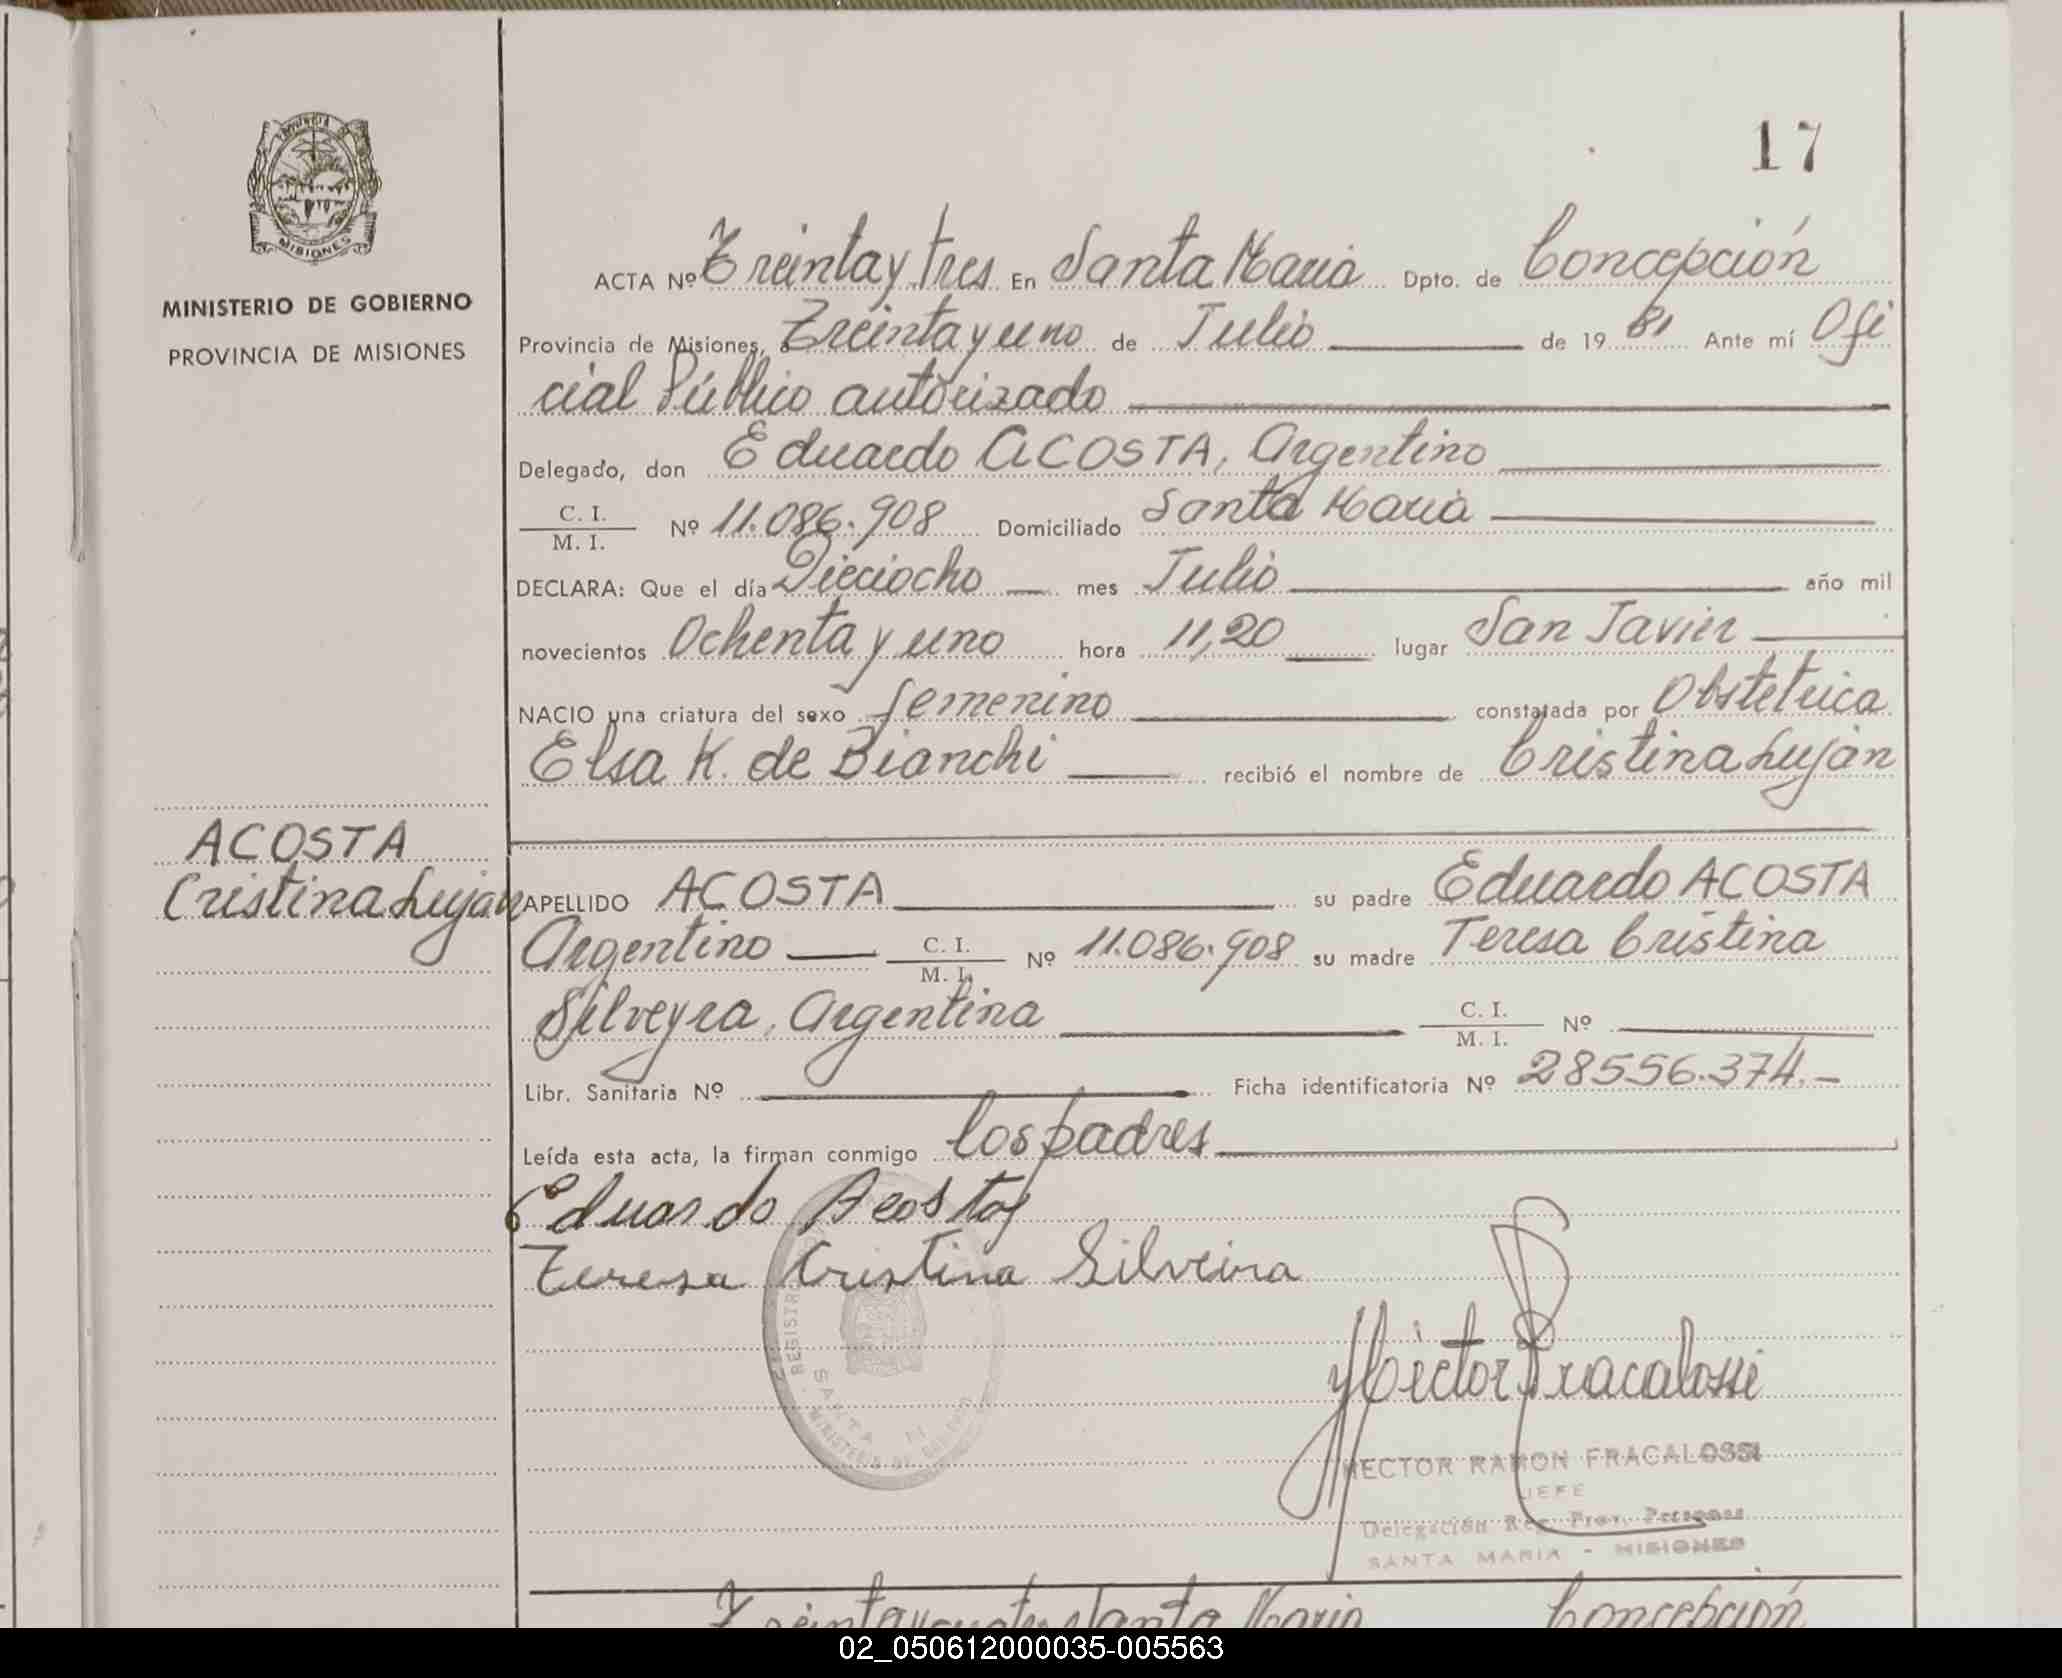 17
PROVINCIA DE
MISIONES
MINISTERIO DE GOBIERNO
PROVINCIA DE MISIONES
ACTA Nº Treinta y tres En Santa María Dpto. de Concepción
Provincia de Misiones, a Treinta y uno de Julio de 19 81 Ante mí Ofi
cial Público autorizado
Delegado, don Eduardo ACOSTA, Argentino
C. I.
M. I. Nº 11.086.908 Domiciliado Santa María
DECLARA: Que el día Dieciocho mes Julio año mil
novecientos Ochenta y uno hora 11,20 lugar San Javier
NACIO una criatura del sexo femenino constatada por Obstetrica
Elsa K. de Bianchi recibió el nombre de Cristina Luján
ACOSTA
Cristina Luján
APELLIDO ACOSTA su padre Eduardo ACOSTA
Argentino C. I. M. I. Nº 11.086.908 su madre Teresa Cristina
Silveyra, Argentina C. I. M. I. Nº
Libr. Sanitaria Nº Ficha identificatoria Nº 28556.374.-
Leída esta acta, la firman conmigo los padres
Eduardo Acosta
Teresa Cristina Silveira
REGISTRO
SANTA
MINISTERIO DE
Héctor Fracalossi
HECTOR RAMON FRACALOSSI
JEFE
Delegación Reg. Prov. Personas
SANTA MARIA - MISIONES
Treinta y cuatro Santa María Concepción
02_050612000035-005563